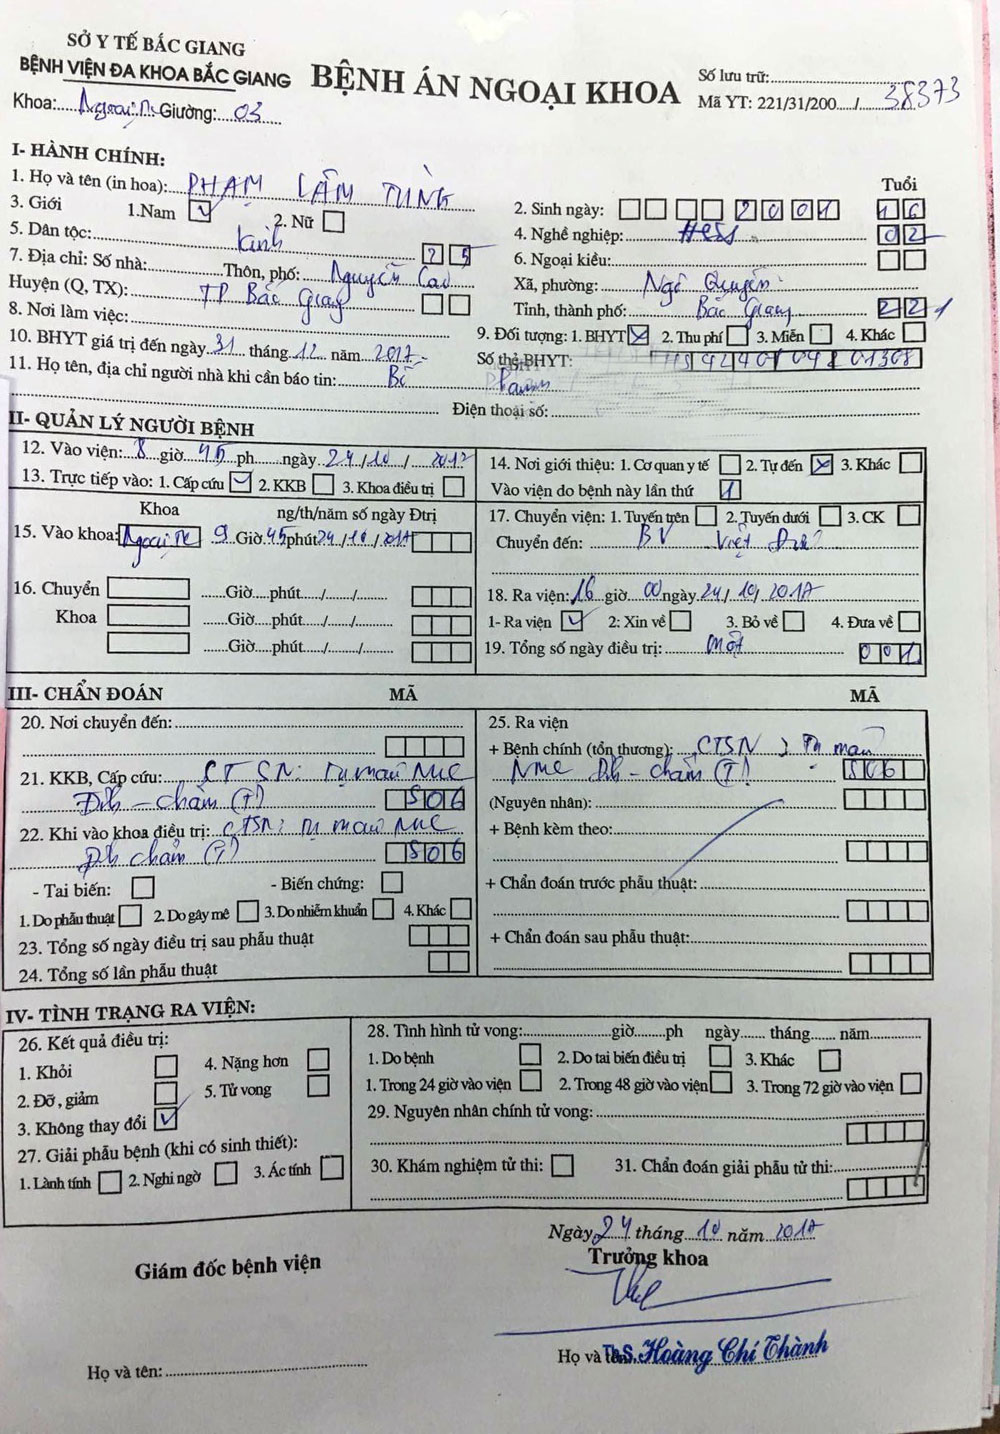 SỞ Y TẾ BẮC GIANG
BỆNH VIỆN ĐA KHOA BẮC GIANG
BỆNH ÁN NGOẠI KHOA
Số lưu trữ:
Mã YT: 221/31/200...../ 38373
Khoa: Giường: 03
I- HÀNH CHÍNH:
1. Họ và tên (in hoa): PHẠM LÂM TÙNG
Tuổi
2. Sinh ngày: 2001 16
3. Giới 1.Nam ✓ 2. Nữ
4. Nghề nghiệp: 02
5. Dân tộc: Kinh 25
6. Ngoại kiều:
7. Địa chỉ: Số nhà: Thôn, phố: Nguyễn Cao
Xã, phường: Ngô Quyền
Huyện (Q, TX): TP Bắc Giang
Tỉnh, thành phố: Bắc Giang 221
8. Nơi làm việc:
9. Đối tượng: 1. BHYT X 2. Thu phí 3. Miễn 4. Khác
10. BHYT giá trị đến ngày 31 tháng 12 năm 2017
Số thẻ BHYT:
11. Họ tên, địa chỉ người nhà khi cần báo tin: Bố
Điện thoại số:
II- QUẢN LÝ NGƯỜI BỆNH
12. Vào viện: 8 giờ 45 ph ngày 24/10/2017
13. Trực tiếp vào: 1. Cấp cứu ✓ 2. KKB 3. Khoa điều trị
14. Nơi giới thiệu: 1. Cơ quan y tế 2. Tự đến X 3. Khác
Vào viện do bệnh này lần thứ 1
Khoa ng/th/năm số ngày Đtrị
15. Vào khoa: 9 Giờ 45 phút 24/10/2017
17. Chuyển viện: 1. Tuyến trên 2. Tuyến dưới 3. CK
Chuyển đến: BV Việt Đức
16. Chuyển Khoa
......Giờ.....phút...../....../.......
......Giờ.....phút...../....../.......
......Giờ.....phút...../....../.......
18. Ra viện: 16 giờ 00 ngày 24/10/2017
1- Ra viện ✓ 2: Xin về 3. Bỏ về 4. Đưa về
19. Tổng số ngày điều trị: một 001
III- CHẨN ĐOÁN MÃ
MÃ
20. Nơi chuyển đến:
21. KKB, Cấp cứu: CTSN: Tụ máu NMC
Đỉnh - chẩm (T) S06
22. Khi vào khoa điều trị: CTSN: Tụ máu NMC
Đỉnh chẩm (T) S06
- Tai biến: - Biến chứng:
1. Do phẫu thuật 2. Do gây mê 3. Do nhiễm khuẩn 4. Khác
23. Tổng số ngày điều trị sau phẫu thuật
24. Tổng số lần phẫu thuật
25. Ra viện
+ Bệnh chính (tổn thương): CTSN: Tụ máu
NMC Đỉnh - chẩm (T) S06
(Nguyên nhân):
+ Bệnh kèm theo:
+ Chẩn đoán trước phẫu thuật:
+ Chẩn đoán sau phẫu thuật:
IV- TÌNH TRẠNG RA VIỆN:
26. Kết quả điều trị:
1. Khỏi 4. Nặng hơn
2. Đỡ , giảm 5. Tử vong
3. Không thay đổi ✓
27. Giải phẫu bệnh (khi có sinh thiết):
1. Lành tính 2. Nghi ngờ 3. Ác tính
28. Tình hình tử vong: giờ ph ngày tháng năm
1. Do bệnh 2. Do tai biến điều trị 3. Khác
1. Trong 24 giờ vào viện 2. Trong 48 giờ vào viện 3. Trong 72 giờ vào viện
29. Nguyên nhân chính tử vong:
30. Khám nghiệm tử thi: 31. Chẩn đoán giải phẫu tử thi:
Ngày 24 tháng 10 năm 2017
Giám đốc bệnh viện
Trưởng khoa
Họ và tên:
Họ và tên: ThS. Hoàng Chí Thành